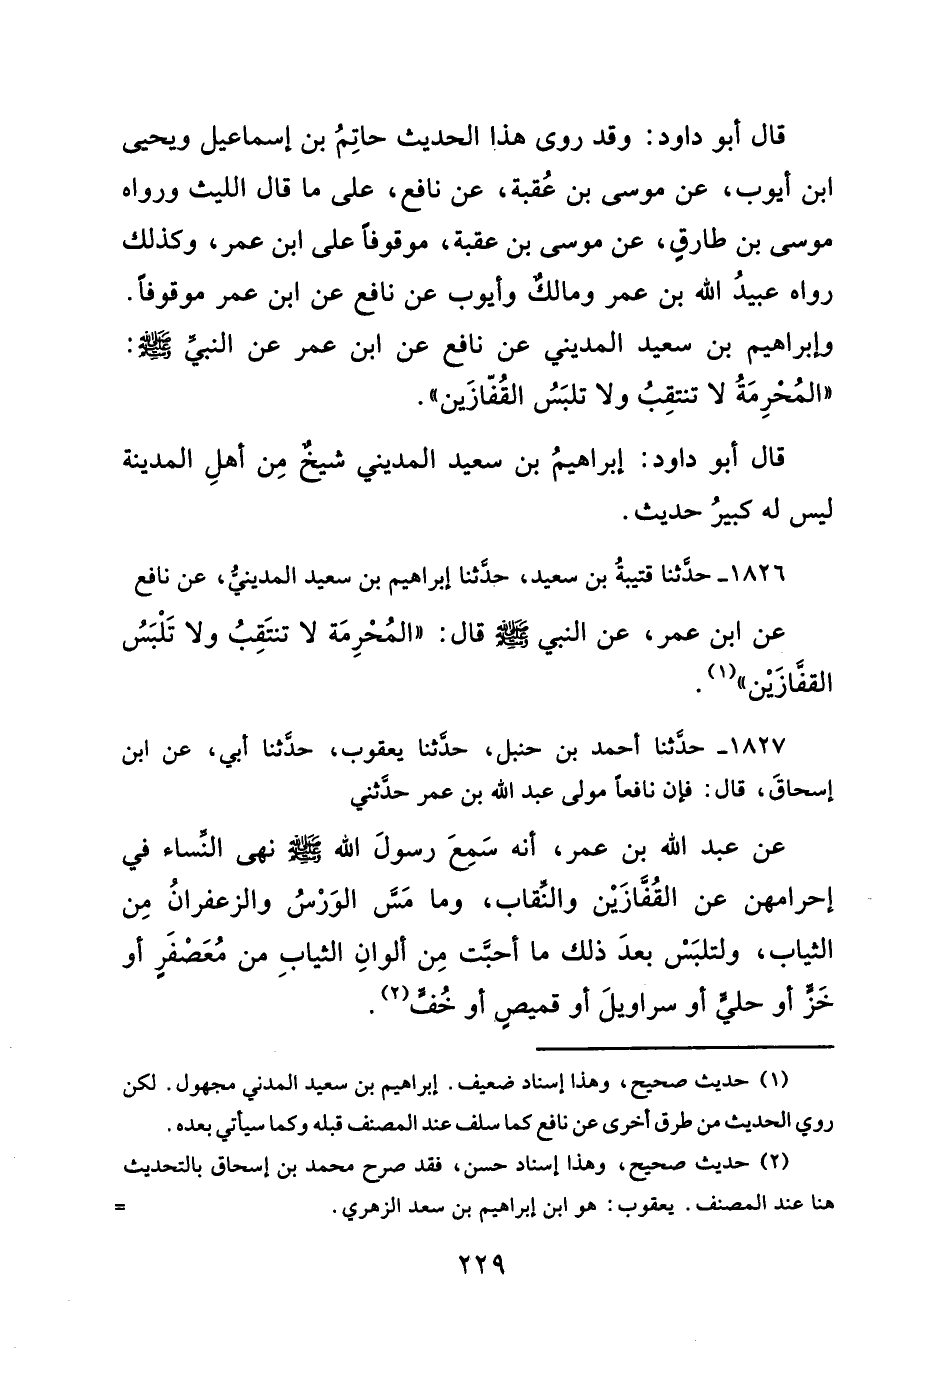 قال أبو داود: وقد روى هذا الحديث حاتِمُ بن إسماعيل ويحيى
ابن أيوب، عن موسى بن عُقبة، عن نافع، على ما قال الليث ورواه
موسى بن طارقٍ، عن موسى بن عقبة، موقوفاً على ابن عمر، وكذلك
رواه عبيدُ الله بن عمر ومالكٌ وأيوب عن نافع عن ابن عمر موقوفاً.
وإبراهيم بن سعيد المديني عن نافع عن ابن عمر عن النبيِّ ﷺ:
«المُحْرِمَةُ لا تنتقِبُ ولا تلبَسُ القُفّازَين».
قال أبو داود: إبراهيمُ بن سعيد المديني شيخٌ مِن أهلِ المدينة
ليس له كبيرُ حديث.
١٨٢٦ـ حدَّثنا قتيبةُ بن سعيد، حدَّثنا إبراهيم بن سعيد المدينيُّ، عن نافع
عن ابن عمر، عن النبي ﷺ قال: «المُحْرِمَة لا تنتَقِبُ ولا تَلْبَسُ
القفَّازَيْن»(١).
١٨٢٧ـ حدَّثنا أحمد بن حنبل، حدَّثنا يعقوب، حدَّثنا أبي، عن ابن
إسحاقَ، قال: فإن نافعاً مولى عبد الله بن عمر حدَّثني
عن عبد الله بن عمر، أنه سَمِعَ رسولَ الله ﷺ نهى النِّساء في
إحرامهن عن القُفَّازَيْن والنِّقاب، وما مَسَّ الوَرْسُ والزعفرانُ مِن
الثياب، ولتلبَسْ بعدَ ذلك ما أحبَّت مِن ألوانِ الثيابِ من مُعَصْفَرٍ أو
خَزٍّ أو حليٍّ أو سراويلَ أو قميصٍ أو خُفٍّ(٢).
(١) حديث صحيح، وهذا إسناد ضعيف. إبراهيم بن سعيد المدني مجهول. لكن
روي الحديث من طرق أخرى عن نافع كما سلف عند المصنف قبله وكما سيأتي بعده.
(٢) حديث صحيح، وهذا إسناد حسن، فقد صرح محمد بن إسحاق بالتحديث
هنا عند المصنف. يعقوب: هو ابن إبراهيم بن سعد الزهري. =
٢٢٩